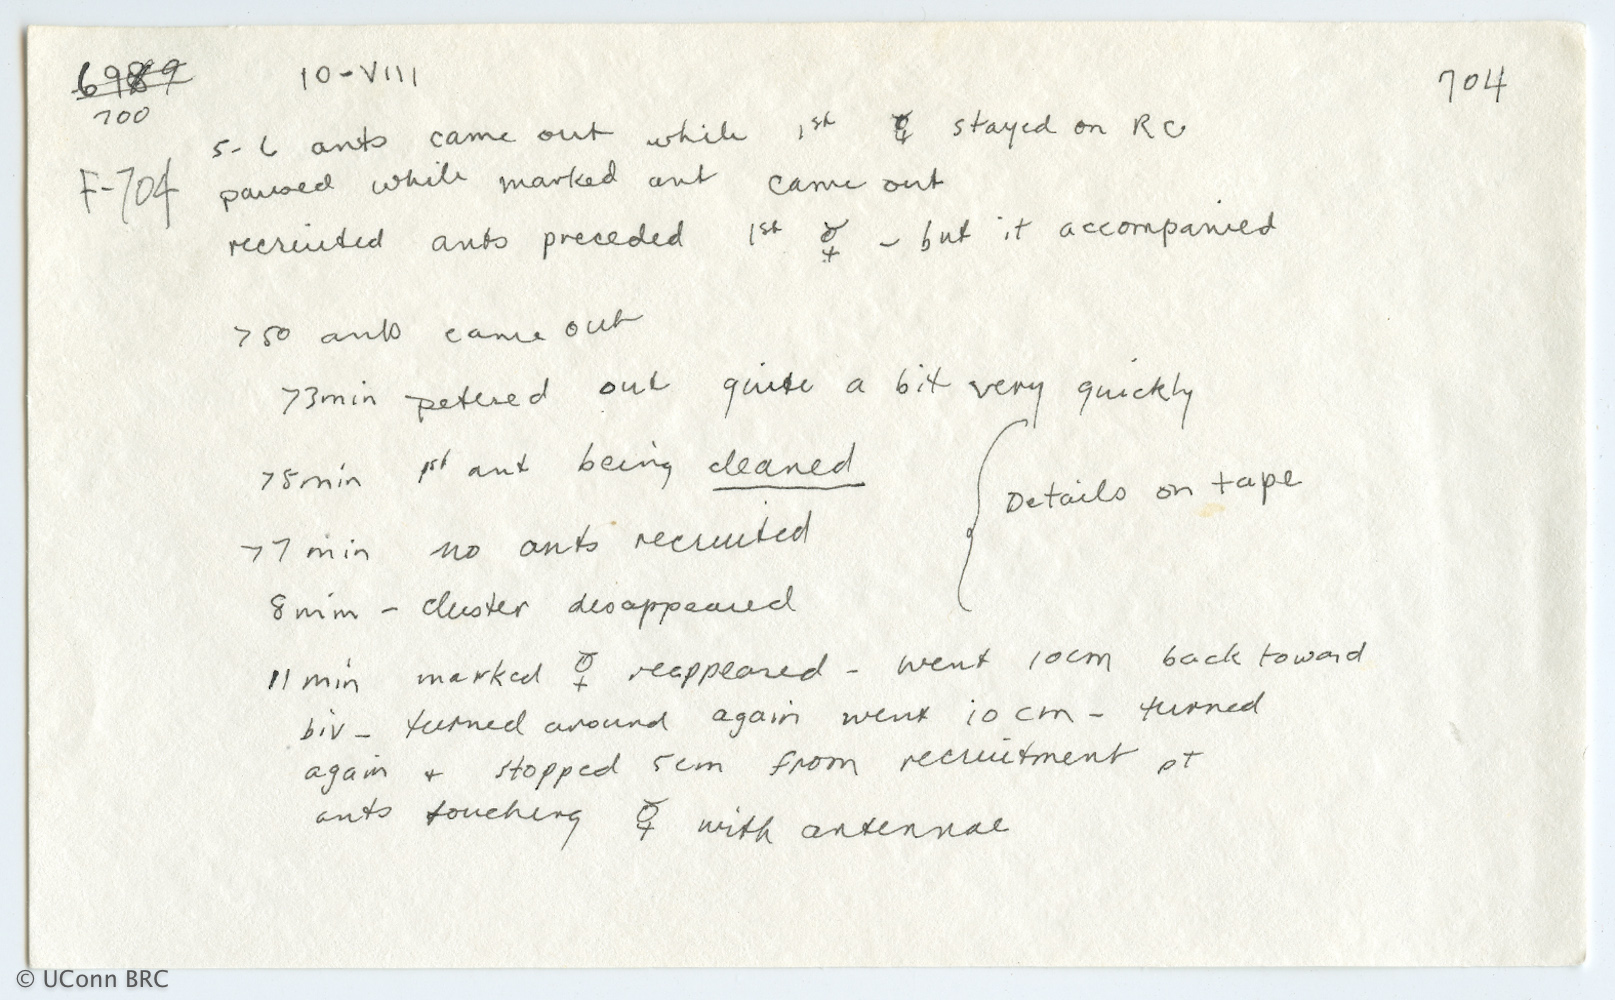 6989 10-VIII 704
700
5-6 ants came out while 1st ☿ stayed on RC
F-704 paused while marked ant came out
recruited ants preceded 1st ☿ - but it accompanied
>50 ants came out
>3min petered out quite a bit very quickly
>5min 1st ant being cleaned
Details on tape
>7min no ants recruited
8min - cluster disappeared
11min marked ☿ reappeared - went 10cm back toward
biv - turned around again went 10cm - turned
again + stopped 5cm from recruitment pt
ants touching ☿ with antennae
© UConn BRC